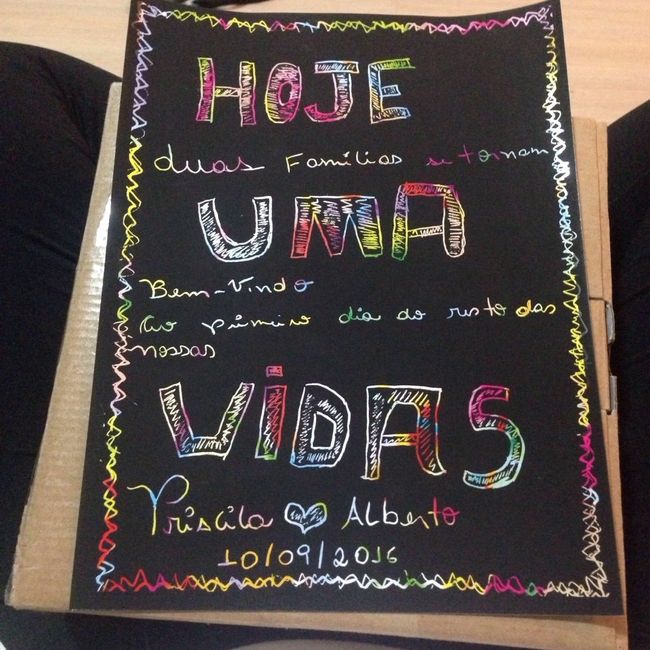 HOJE
duas Famílias se tornam
UMA
Bem-Vindo
Ao primeiro dia do resto das
nossas
ViDAS
Priscila Alberto
10/09/2016